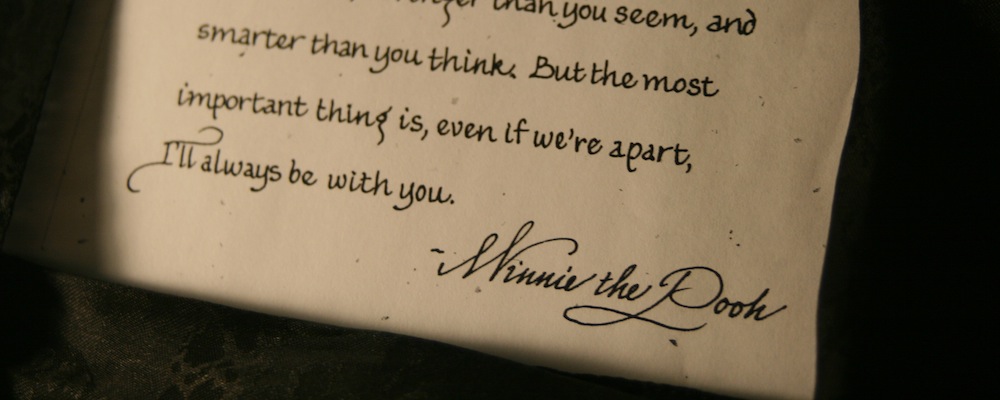 than you seem, and
smarter than you think. But the most
important thing is, even if we're apart,
I'll always be with you.
-Winnie the Pooh